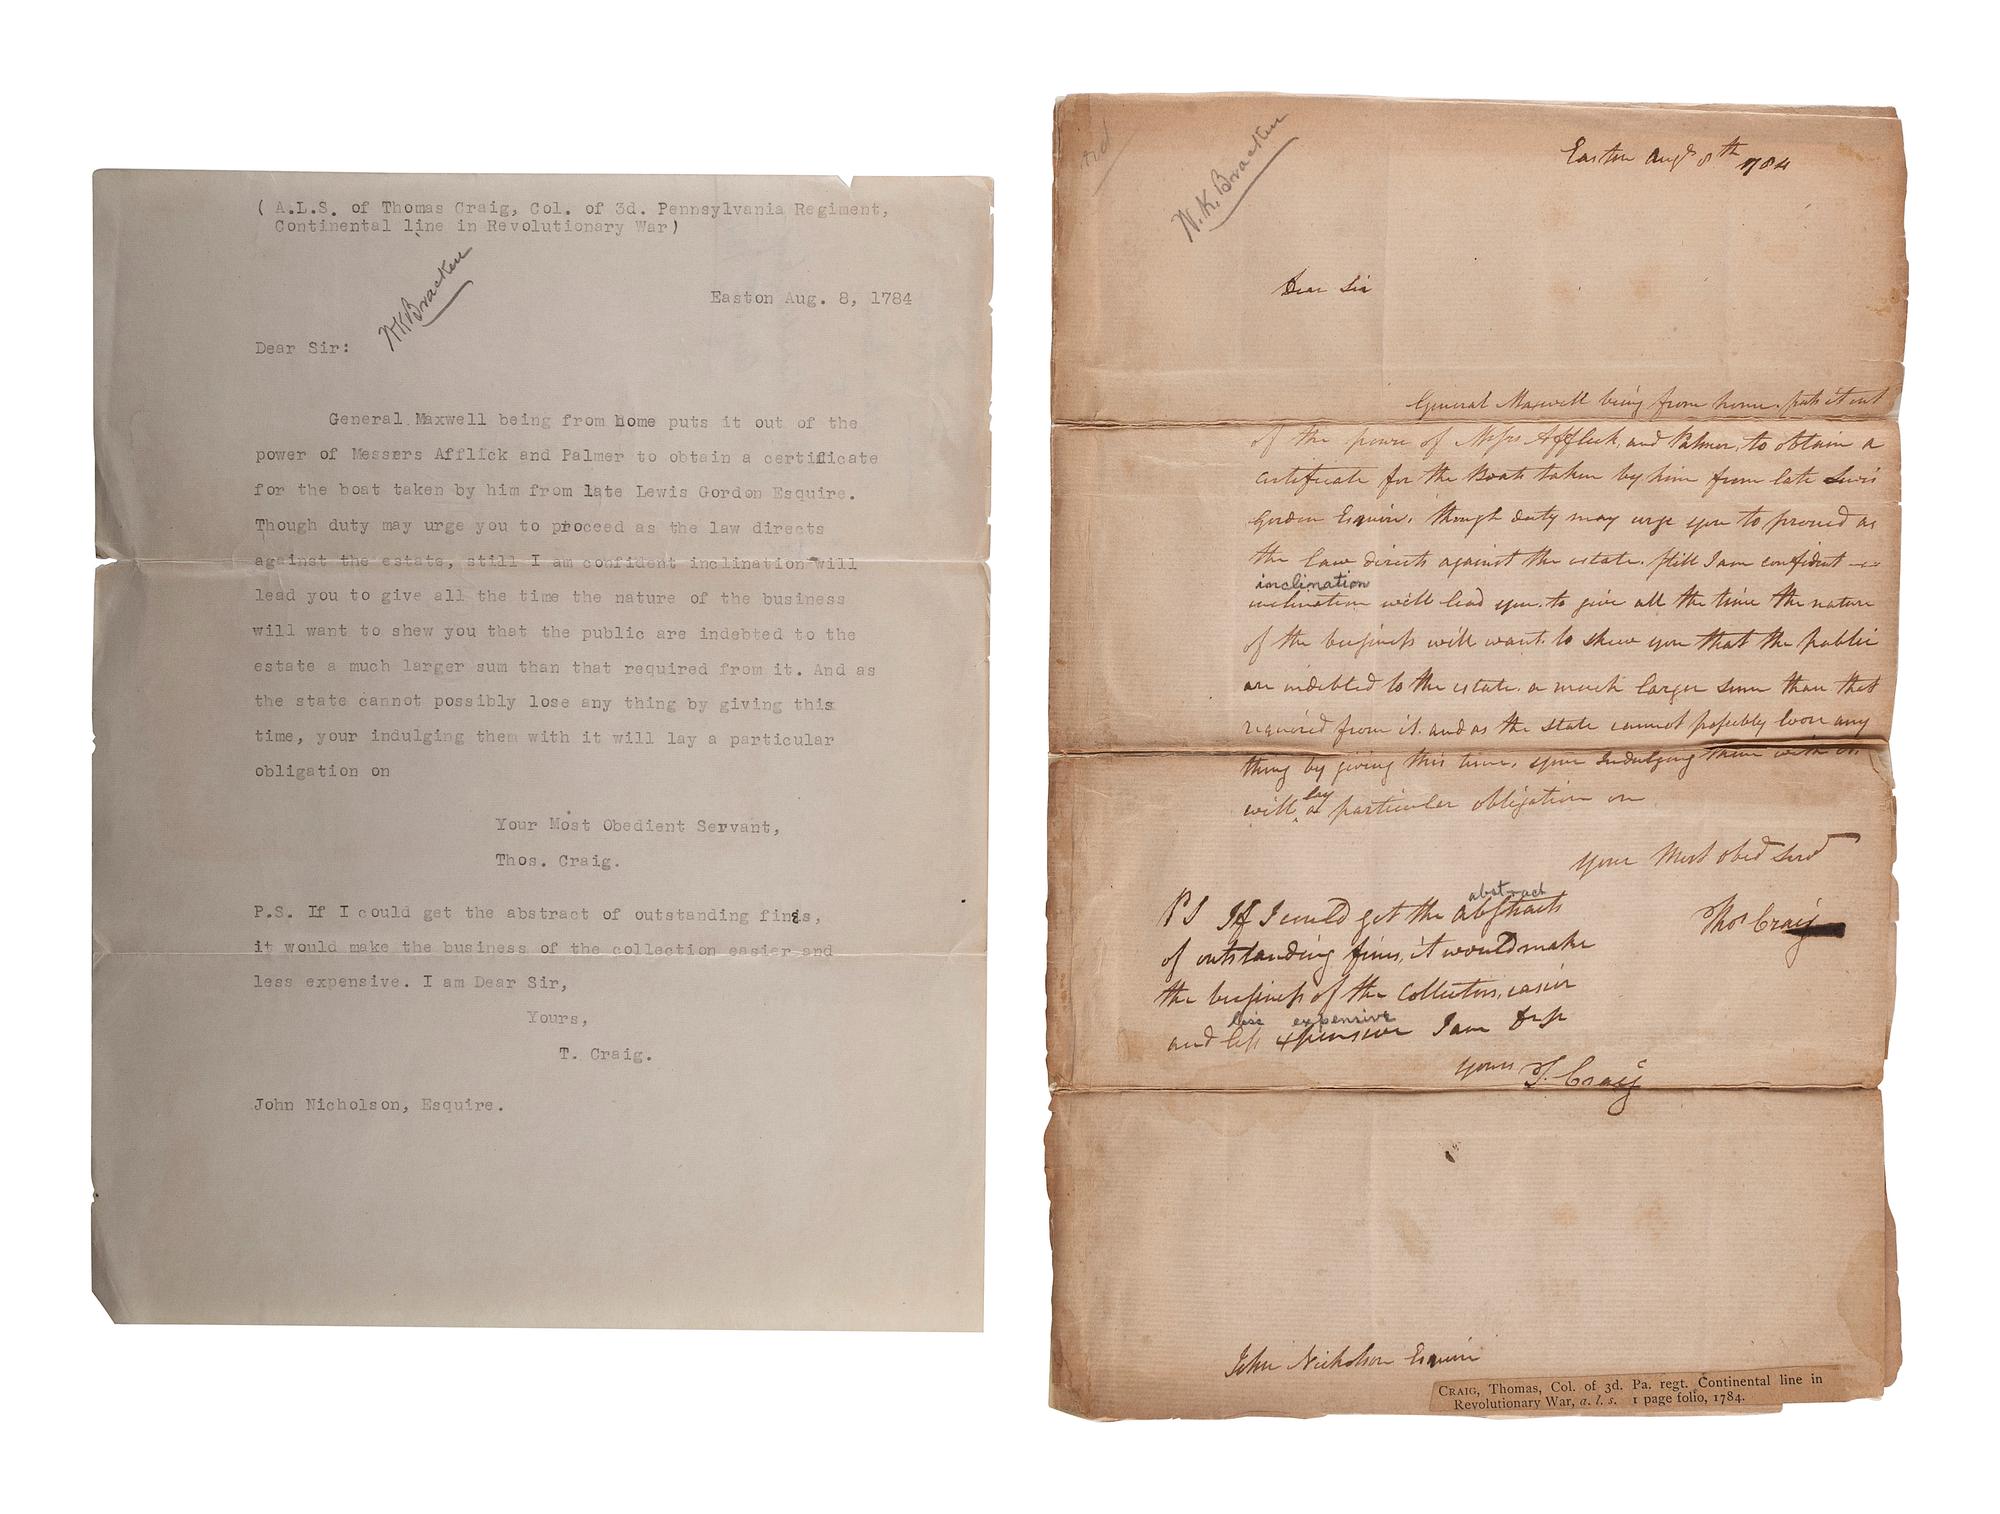 ( A.L.S. of Thomas Craig, Col. of 3d. Pennsylvania Regiment,
Continental line in Revolutionary War)
N.K. Bracken
Easton Aug. 8, 1784
Dear Sir:
General Maxwell being from home puts it out of the
power of Messers Afflick and Palmer to obtain a certificate
for the boat taken by him from late Lewis Gordon Esquire.
Though duty may urge you to proceed as the law directs
against the estate, still I am confident inclination will
lead you to give all the time the nature of the business
will want to shew you that the public are indebted to the
estate a much larger sum than that required from it. And as
the state cannot possibly lose any thing by giving this
time, your indulging them with it will lay a particular
obligation on
Your Most Obedient Servant,
Thos. Craig.
P.S. If I could get the abstract of outstanding fines,
it would make the business of the collection easier and
less expensive. I am Dear Sir,
Yours,
T. Craig.
John Nicholson, Esquire.
N.K. Bracken
Easton Augt 8th 1784
Dear Sir
General Maxwell being from home. puts it out
of the power of Messrs Affleck, and Palmer, to obtain a
certificate for the Boats taken by him from late Lewis
Gordon Esquire. though duty may urge you to proceed as
the law directs against the estate. still I am confident
inclination
inclination will lead you. to give all the time the nature
of the business will want. to shew you that the public
are indebted to the estate. a much larger sum than that
required from it. and as the state cannot possibly loose any
thing by giving this time. your Indulging them with it.
lay
will a particular obligation on
your Most obed Servt
Thos Craig
abstract
PS If I could get the abstracts
of outstanding fines, it would make
the business of the Collectors, easier
less expensive
and less expensive I am
yours T. Craig
John Nicholson Esquire
CRAIG, Thomas, Col. of 3d. Pa. regt. Continental line in
Revolutionary War, a. l. s. 1 page folio, 1784.